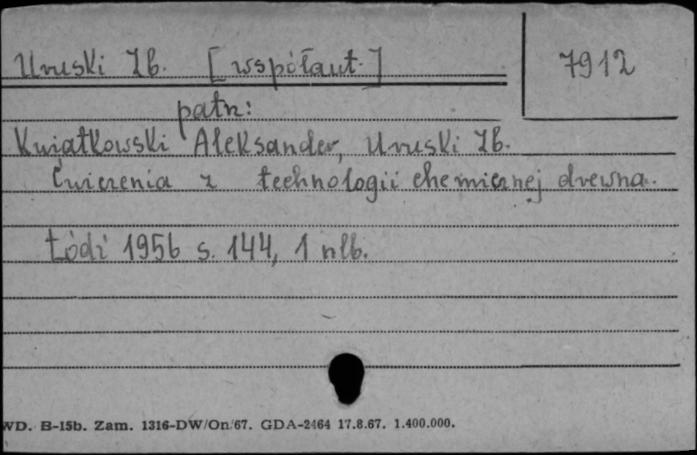 Uruski Zb. [współaut.]
7912
patrz:
Kwiatkowski Aleksander, Uruski Zb.
Ćwiczenia z technologii chemicznej drewna.
Łódź 1956 s. 144, 1 nlb.
WD. B-15b. Zam. 1316-DW/On/67. GDA-2464 17.8.67. 1.400.000.